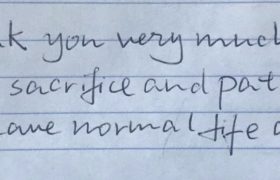 k you very much
sacrifice and pat
ave normal life a